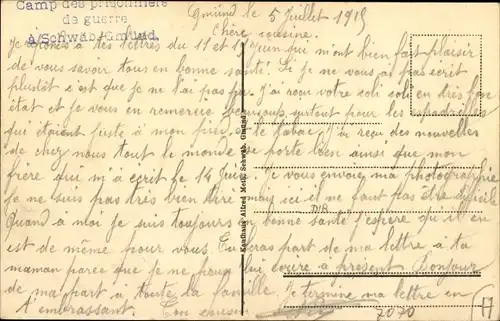 Camp des prisonniers
de guerre
à Schwäb. Gmünd.
Gmünd le 5 Juillet 1915
Chère cousine.
Je réponds à tes lettres du 11 et 1 Juin qui m'ont bien fait plaisir
de vous savoir tous en bonne santé. Si je ne vous ai pas écrit
plustôt c'est que je ne l'ai pas pu. J'ai reçu votre coli en très bon
état et je vous en remercie beaucoup surtout pour les espadrilles
qui étaient juste à mon pied et le tabac. J'ai reçu des nouvelles
de chez nous tout le monde se porte bien ainsi que mon
frère qui m'a écrit le 14 Juin. Je vous envoie ma photographie
je ne suis pas très bien tiré mais ici il ne faut pas être difficile
Quand à moi je suis toujours en bonne santé j'espère qu'il en
est de même pour vous. Tu feras part de ma lettre à ta
maman parce que je ne peux lui écrire à présent. Bonjour
de ma part à toute la famille. Je termine ma lettre en
t'embrassant. Ton cousin
Kaufhaus Alfred Meth, Schwäb. Gmünd
7070
H